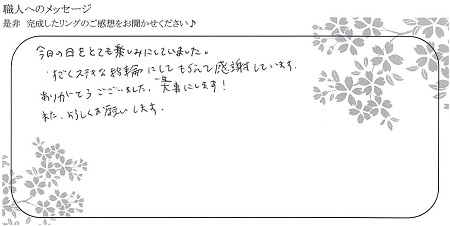 職人へのメッセージ
是非 完成したリングのご感想をお聞かせください♪
今日の日をとても楽しみにしていました。
すごくステキな指輪にしてもらって感謝しています。
ありがとうございました。一生大事にします！
また、よろしくお願いします。